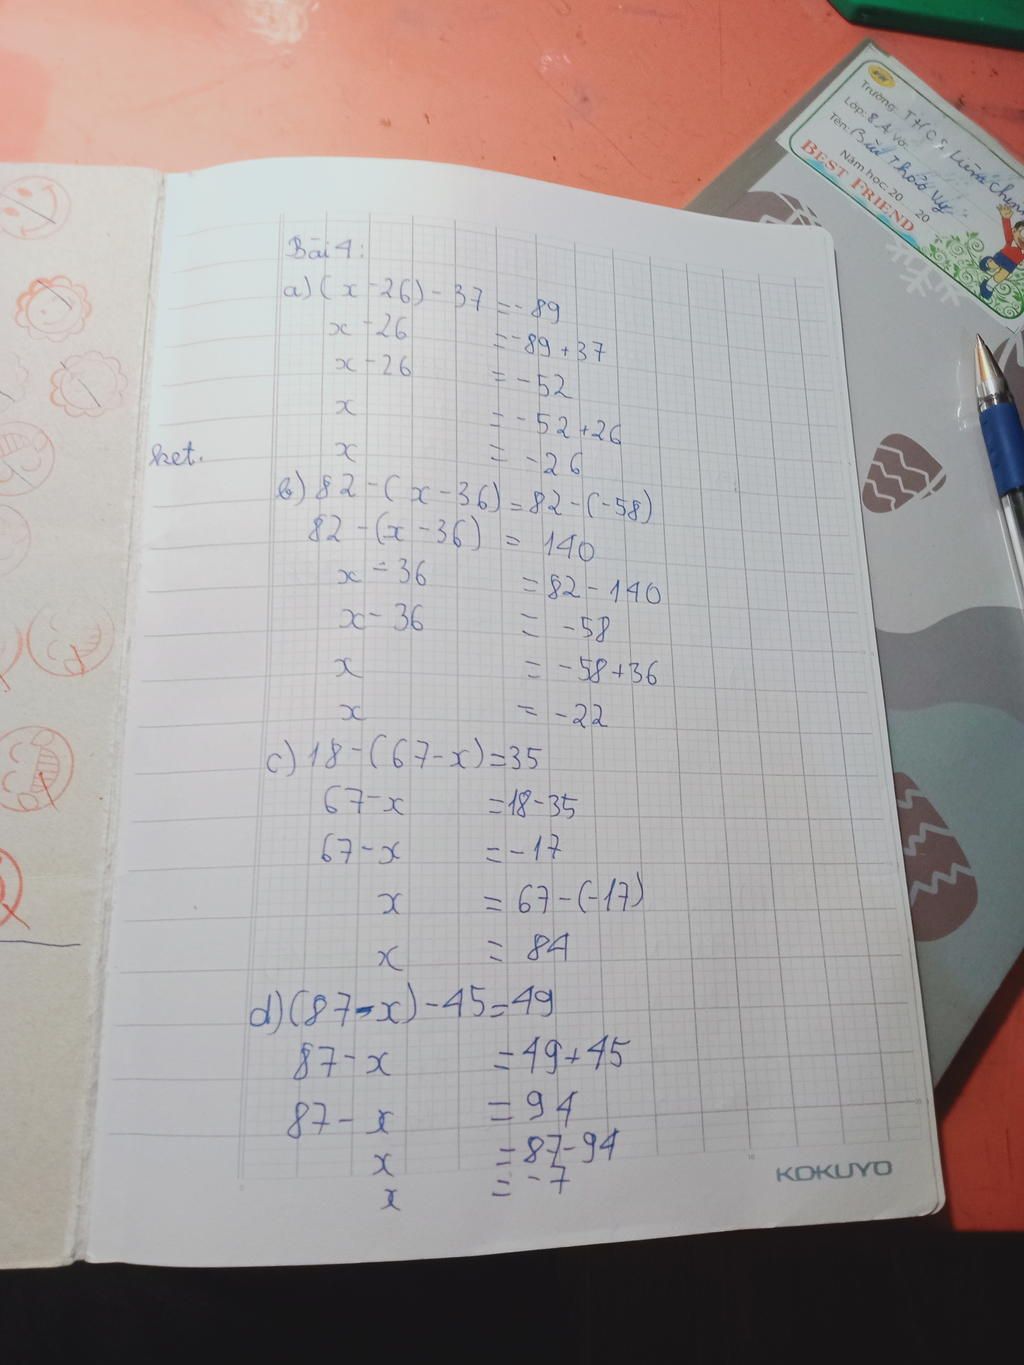 Trường: THCS
Lớp: 8A
Tên: Bùi Thảo Vy
Năm học: 20 20
BEST FRIEND
Bài 4:
a) (x - 26) - 37 = -89
x - 26 = -89 + 37
x - 26 = -52
x = -52 + 26
x = -26
ket.
b) 82 - (x - 36) = 82 - (-58)
82 - (x - 36) = 140
x - 36 = 82 - 140
x - 36 = -58
x = -58 + 36
x = -22
c) 18 - (67 - x) = 35
67 - x = 18 - 35
67 - x = -17
x = 67 - (-17)
x = 84
d) (87 - x) - 45 = 49
87 - x = 49 + 45
87 - x = 94
x = 87 - 94
x = -7
KOKUYO